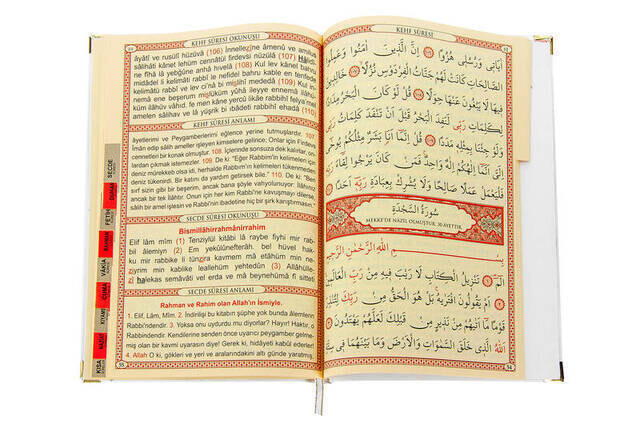 KEHF SÛRESİ OKUNUŞU
âyâtî ve rusulî hüzüvâ (106) İnnellezîne âmenû ve amilus
sâlihâti kânet lehüm cennâtül firdevsi nüzülâ (107) Hâlidî-
ne fîhâ lâ yebğûne anhâ hıvelâ (108) Kul lev kânel bahru
midâdel li kelimâti rabbî le nefidel bahru kable en tenfede
kelimâtü rabbî ve lev ci'nâ bi mislihî mededâ (109) Kul in-
nemâ ene beşerum mislüküm yûhâ ileyye ennemâ ilâhü-
küm ilâhüv vâhid. fe men kâne yercû likâe rabbihî felya'mel
amelen sâlihav ve lâ yüşrik bi ıbâdeti rabbihî ehadâ (110)
KEHF SÛRESİ ANLAMI
âyetlerimi ve Peygamberlerimi eğlence yerine tutmuşlardır. 107.
İman edip sâlih ameller işleyen kimselere gelince; Onlar için Firdevs
cennetleri bir konak olmuştur. 108. İçlerinde sonsuza dek kalırlar, on-
lardan çıkmak istemezler. 109. De ki: "Eğer Rabbimin kelimeleri için
deniz mürekkep olsa idi, herhalde Rabbimin kelimeleri tükenmeden
deniz tükenirdi. Bir katını da yardım getirsek bile." 110. De ki: "Ben
sırf sizin gibi bir beşerim, ancak bana şöyle vahyolunuyor: İlâhınız
ancak bir tek ilâhtır. Onun için her kim Rabbi'ne kavuşmayı dilerse
sâlih bir amel işlesin ve Rabbi'nin ibadetine hiç bir şirk karıştırmasın."
SECDE SÛRESİ OKUNUŞU
Bismillâhirrahmânirrahîm
Elif lâm mîm (1) Tenzîlül kitâbi lâ raybe fîyhi mir rab-
bil âlemiyn (2) Em yekûlûnefterâh. bel hüvel hak-
ku mir rabbike li tünzira kavmem mâ etâhüm min ne-
ziyrim min kablike leallehüm yehtedûn (3) Allâhülle-
zî halekas semâvâti vel erda ve mâ beynehümâ fî sitteti
SECDE SÛRESİ ANLAMI
Rahman ve Rahim olan Allah'ın İsmiyle.
1. Elif, Lâm, Mîm. 2. İndirilişi bu kitabın şüphe yok bunda âlemlerin
Rabbi'ndendir. 3. Yoksa onu uydurdu mu diyorlar? Hayır! Haktır, o
Rabbindendir. Kendilerine senden önce uyarıcı peygamber gelme-
miş olan bir kavmi uyarasın diye! Gerek ki, hidâyeti kabul ederler!
4. Allah O ki, gökleri ve yeri ve aralarındakini altı günde yaratmış,
55
SECDE
DUHAN
FETİH
RAHMAN
VAKIA
CUMA
KIYAME
KISA
KEHF SÛRESİ
اٰيَاتٖي وَرُسُلٖي هُزُوًا ﴿١٠٦﴾ اِنَّ الَّذٖينَ اٰمَنُوا وَعَمِلُوا
الصَّالِحَاتِ كَانَتْ لَهُمْ جَنَّاتُ الْفِرْدَوْسِ نُزُلًا ﴿١٠٧﴾ خَالِدٖينَ
فٖيهَا لَا يَبْغُونَ عَنْهَا حِوَلًا ﴿١٠٨﴾ قُلْ لَوْ كَانَ الْبَحْرُ مِدَادًا
لِكَلِمَاتِ رَبّٖي لَنَفِدَ الْبَحْرُ قَبْلَ اَنْ تَنْفَدَ كَلِمَاتُ رَبّٖي
وَلَوْ جِئْنَا بِمِثْلِهٖ مَدَدًا ﴿١٠٩﴾ قُلْ اِنَّمَا اَنَا بَشَرٌ مِثْلُكُمْ يُوحٰى
اِلَيَّ اَنَّمَا اِلٰهُكُمْ اِلٰهٌ وَاحِدٌ فَمَنْ كَانَ يَرْجُوا لِقَاءَ رَبِّهٖ
فَلْيَعْمَلْ عَمَلًا صَالِحًا وَلَا يُشْرِكْ بِعِبَادَةِ رَبِّهٖ اَحَدًا ﴿١١٠﴾
سُورَةُ السَّجْدَةِ
MEKKE'DE NAZİL OLMUŞTUR. 30 AYETTİR.
بِسْمِ اللّٰهِ الرَّحْمٰنِ الرَّحٖيمِ
الٓمٓ ﴿١﴾ تَنْزٖيلُ الْكِتَابِ لَا رَيْبَ فٖيهِ مِنْ رَبِّ الْعَالَمٖينَ ﴿٢﴾
اَمْ يَقُولُونَ افْتَرٰيهُ بَلْ هُوَ الْحَقُّ مِنْ رَبِّكَ لِتُنْذِرَ
قَوْمًا مَا اَتٰيهُمْ مِنْ نَذٖيرٍ مِنْ قَبْلِكَ لَعَلَّهُمْ يَهْتَدُونَ ﴿٣﴾
اَللّٰهُ الَّذٖي خَلَقَ السَّمٰوَاتِ وَالْاَرْضَ وَمَا بَيْنَهُمَا فٖي سِتَّةِ
54